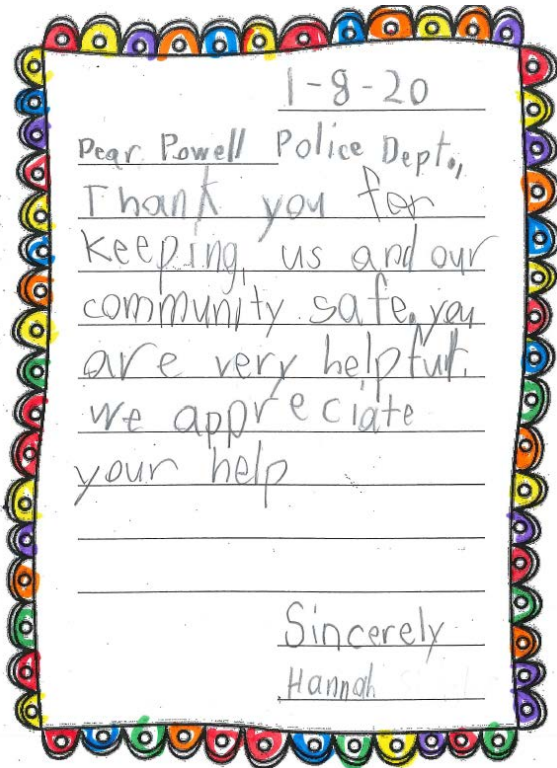 1-8-20
Dear Powell Police Dept.,
Thank you for
keeping, us and our
community safe. you
are very helpfull.
we appreciate
your help
Sincerely
Hannah